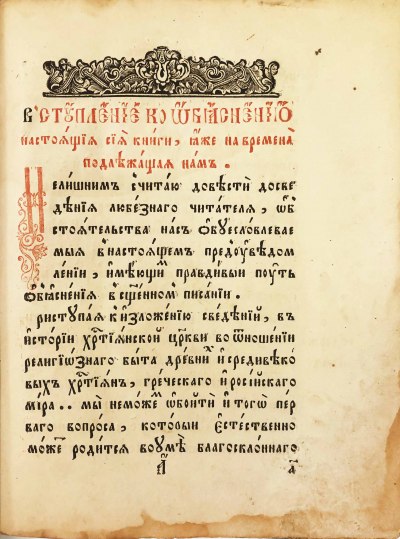 В̾СТꙊПЛЕ́НЇЕ КО Ѡ҆Б̾ѦСНЕ́НЇЮ
настоѧ́щїѧ сїѧ̀ кни́ги, ꙗ҆́же на времена̀
подлежа́щаѧ на́мъ.
Не ли́шнимъ счита́ю довѣстѝ досвѣ
дѣ́нїѧ любе́знаго чита́телѧ, ѡ҆б
стоѧ́телства на́съ ѻ҆буесло́влевае
мыѧ в̾настоѧ́щемъ предоувѣ́дом
ле́нїи, и҆мѣ́ющи правди́выи поу́ть
ѻ҆б̾ѧсне́нїѧ в̾сщ҃е́нномъ писа́нїи.
ристꙋпа́ѧ к̾изложе́нїю свѣ́денїй, въ
и҆сто́рїи хрⷭ҇тїѧ́нской цр҃кви во ѿноше́нїи
религїѡ́знаго бы́та дре́внихъ и҆средневѣко
вы́хъ хрⷭ҇тїѧ́нъ, гре́ческаго и҆росі́йскаго
мі́ра.. мы̀ немо́жемъ ѡ҆бойтѝ и҆тогѡ̀ пе́р
ваго вопро́са, кото́выи є҆сте́ственно
мо́же роди́тсѧ воумѣ̀ благоскло́ннаго
а҃